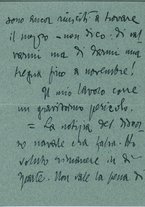 sono ancor riusciti a trovare
il mezzo – non dico: di sal-
varmi ma di darmi una
tregua fino a novembre!
Il mio lavoro corre
un gravissimo pericolo.
= La notizia del
era falsa. Ho
voluto rimanere in di-
sparte. Non vale la pena di